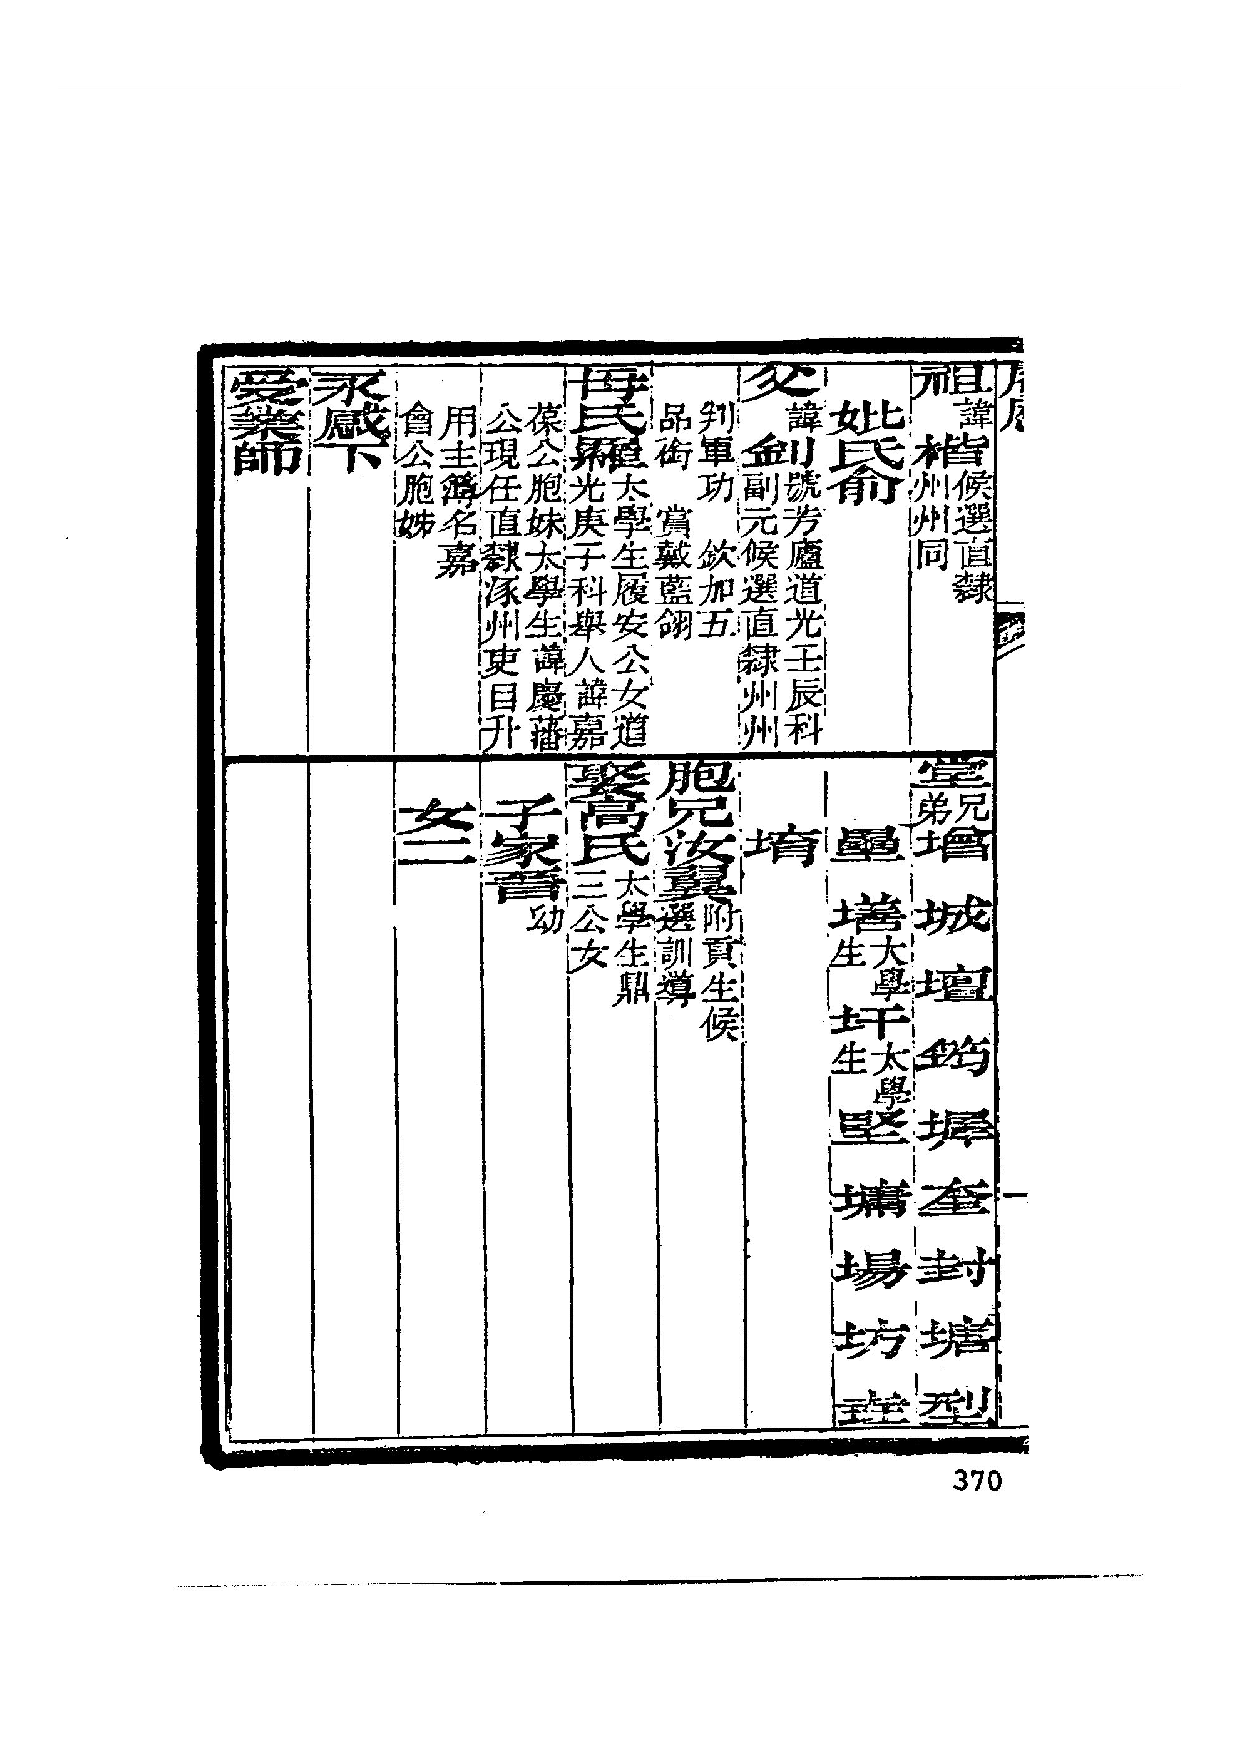 祖諱楷候選直隸州州同
妣氏俞
父諱釗號芳廬道光壬辰科副元候選直隸州州
判軍功 欽加五品銜 賞戴藍翎
母氏羅太學生履安公女道光庚子科舉人諱嘉
葆公胞妹太學生諱慶藩公現任直隸涿州吏目升
用主簿名嘉會公胞姊
永感下
受業師
堂兄弟增 城 壇 筠 墀 奎 封 塘 型
壘 墡太學生 圩太學生 堅 墉 場 坊
堉
胞兄汝翼附貢生候選訓導
娶高氏太學生鼎三公女
子家晉幼
女二
370